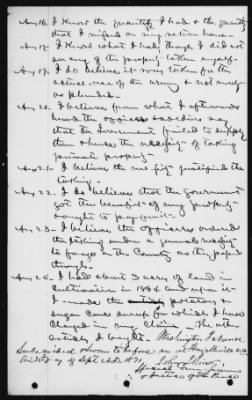 Ans 16. I knew the quantity I had & the quantity
that I missed on my return home -
Ans 17. I know what I had, though I did not
see any of the property taken myself -
Ans 19. I do believe it was taken for the
actual use of the army & not merely
as plunder -
Ans 20. I believe from what I afterwards
heard the officers & soldiers say
that the Government failed to supply
them & hence the necessity of taking
private property -
Ans 21. I believe the necessity justified the
taking -
Ans 22. I do believe that the government
got the benefit of my property
& ought to pay for it -
Ans 23. I believe the officers ordered
the taking under a general
to forage on the County as they passed
through -
Ans 26. I had about 3 acres of land in
cultivation in 1864 and upon it
I made the potatoes &
sugar cane syrup for which I have
charged in my claim - The other
articles I bought. Washington
Subscribed & sworn to before me at Fayetteville
this day of Sept A.D. 1871.
John
Special Comr
& Justice of the Peace